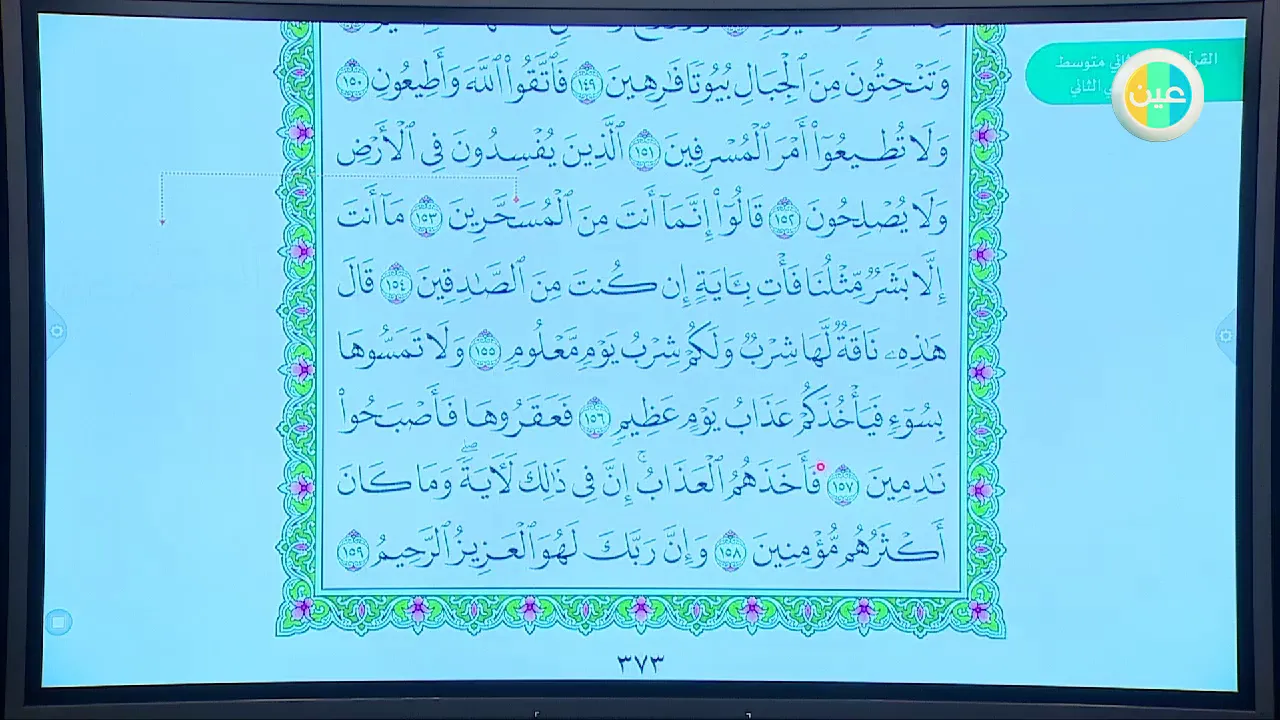 وَتَنْحِتُونَ مِنَ ٱلْجِبَالِ بُيُوتًا فَٰرِهِينَ ١٤٩ فَٱتَّقُوا۟ ٱللَّهَ وَأَطِيعُونِ ١٥٠
وَلَا تُطِيعُوٓا۟ أَمْرَ ٱلْمُسْرِفِينَ ١٥١ ٱلَّذِينَ يُفْسِدُونَ فِى ٱلْأَرْضِ
وَلَا يُصْلِحُونَ ١٥٢ قَالُوٓا۟ إِنَّمَآ أَنتَ مِنَ ٱلْمُسَحَّرِينَ ١٥٣ مَآ أَنتَ
إِلَّا بَشَرٌ مِّثْلُنَا فَأْتِ بِـَٔايَةٍ إِن كُنتَ مِنَ ٱلصَّٰدِقِينَ ١٥٤ قَالَ
هَٰذِهِۦ نَاقَةٌ لَّهَا شِرْبٌ وَلَكُمْ شِرْبُ يَوْمٍ مَّعْلُومٍ ١٥٥ وَلَا تَمَسُّوهَا
بِسُوٓءٍ فَيَأْخُذَكُمْ عَذَابُ يَوْمٍ عَظِيمٍ ١٥٦ فَعَقَرُوهَا فَأَصْبَحُوا۟
نَٰدِمِينَ ١٥٧ فَأَخَذَهُمُ ٱلْعَذَابُ ۚ إِنَّ فِى ذَٰلِكَ لَـَٔايَةً ۖ وَمَا كَانَ
أَكْثَرُهُم مُّؤْمِنِينَ ١٥٨ وَإِنَّ رَبَّكَ لَهُوَ ٱلْعَزِيزُ ٱلرَّحِيمُ ١٥٩
٣٧٣
متوسط
الثاني
عين